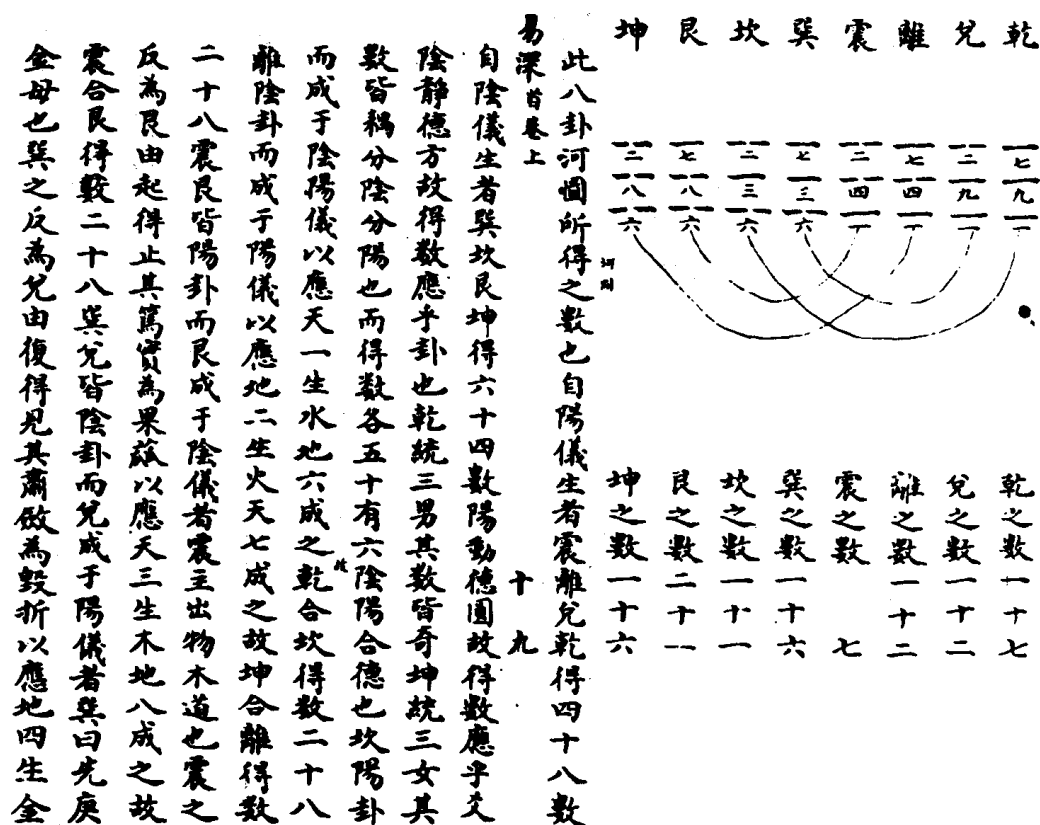 乾 兌 離 震 巽 坎 艮 坤
七 二 七 二 七 二 七 二
九 九 四 四 三 三 八 八
一 一 一 一 六 六 六 六
乾之數一十七
兌之數一十二
離之數一十二
震之數 七
巽之數一十六
坎之數一十一
艮之數二十一
坤之數一十六
河圖
此八卦河圖所得之數也自陽儀生者震離兌乾得四十八數
易深首卷上 十九
自陰儀生者巽坎艮坤得六十四數陽動德圓故得數應乎爻
陰靜德方故得數應乎卦也乾統三男其數皆奇坤統三女其
數皆耦分陰分陽也而得數各五十有六陰陽合德也坎陽卦
而成于陰陽儀以應天一生水地六成之乾合坎得數二十八
離陰卦而成于陽儀以應地二生火天七成之故坤合離得數
二十八震艮皆陽卦而艮成于陰儀者震主出物木道也震之
反為艮由起得止其篤實為果蓏以應天三生木地八成之故
震合艮得數二十八巽兌皆陰卦而兌成于陽儀者巽曰先庚
金母也巽之反為兌由復得見其肅殺為毀折以應地四生金